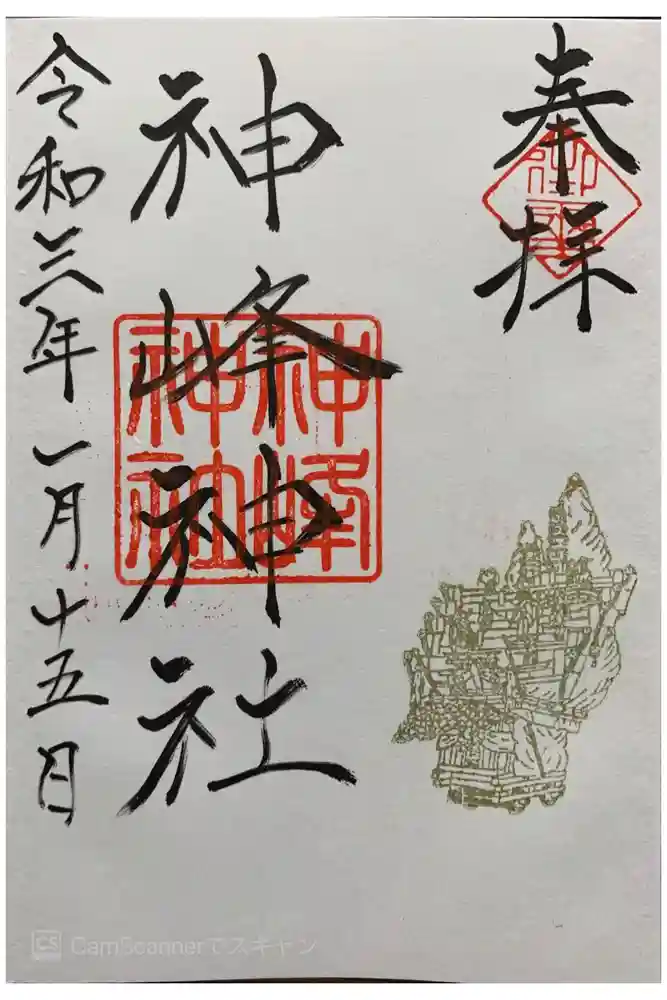 奉拝
神峰神社
神峰神社
令和三年一月十五日
CS CamScannerでスキャン